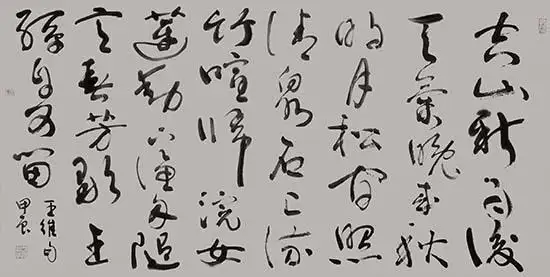 空山新雨後
天氣晚來秋
明月松間照
清泉石上流
竹喧歸浣女
蓮動下漁舟隨
意春芳歇王
孫自可留
王維句